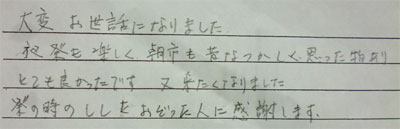 大変 お世話になりました
秋祭も楽しく 朝市も昔なつかしく思った物あり
とても良かったです 又来たくなりました
祭の時のししをおどった人に感謝します。